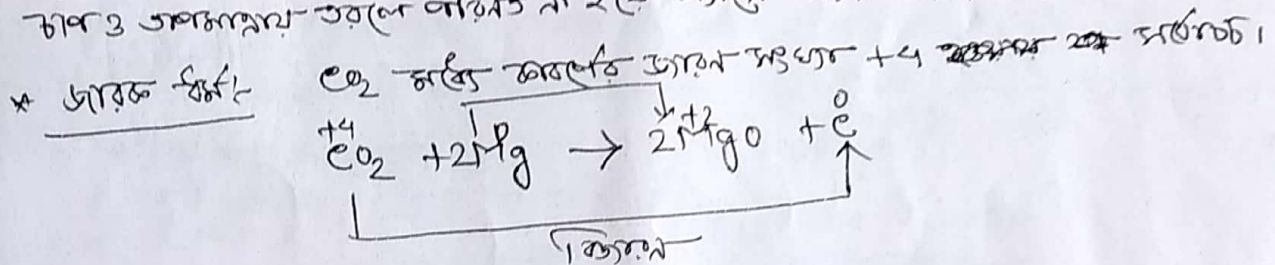 চাপ ও তাপমাত্রায় তরলে পরিণত
* জারক ধর্ম:- CO2 মধ্যে কার্বনের জারন সংখ্যা +4 সর্বোচ্চ।
+4 +2 0
CO2 + 2Mg → 2MgO + C
বিজারন